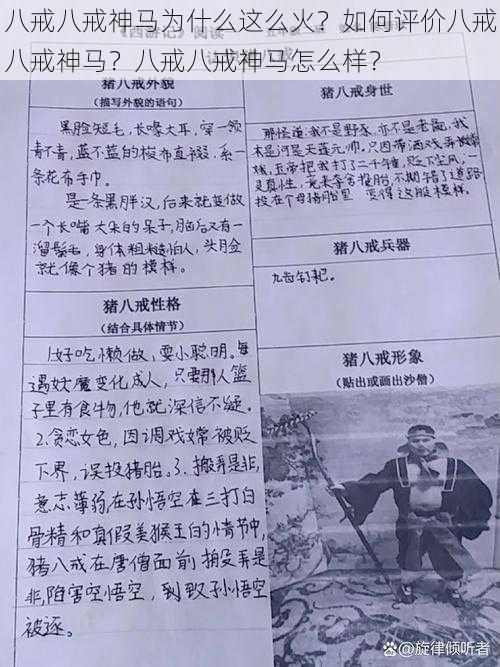 八戒八戒神马为什么这么火？如何评价八戒
八戒神马？八戒八戒神马怎么样？
《西游记》阅读
猪八戒外貌
（描写外貌的语句）
黑脸短毛，长喙大耳，穿一领
青不青，蓝不蓝的梭布直裰，系一
条花布手巾。
是一条黑胖汉，后来就变做
一个长嘴大朵的呆子，脑后又有一
溜鬃毛，身体粗糙怕人，头脸
就像个猪的模样。
猪八戒性格
（结合具体情节）
1.好吃懒做，耍小聪明。每
遇妖魔变化成人，只要那人篮
子里有食物，他就深信不疑。
2.贪恋女色，因调戏嫦被贬
下界，误投猪胎。3.搬弄是非，
意志薄弱，在孙悟空在三打白
骨精和真假美猴王的情节中，
猪八戒在唐僧面前搬弄是
非，陷害空悟空，到致孙悟空
被逐。
猪八戒身世
那怪道：我不是野豕，亦不是老彘，我
本是河是天蓬元帅，只因带酒戏弄嫦
娥，玉帝把我打了二千锤，贬下尘凡，一
灵真性，竟来夺舍投胎，不期错了道路
投在个母猪胎里 变得这般模样。
猪八戒兵器
九齿钉耙。
猪八戒形象
（贴出或画出沙僧）
@旋律倾听者